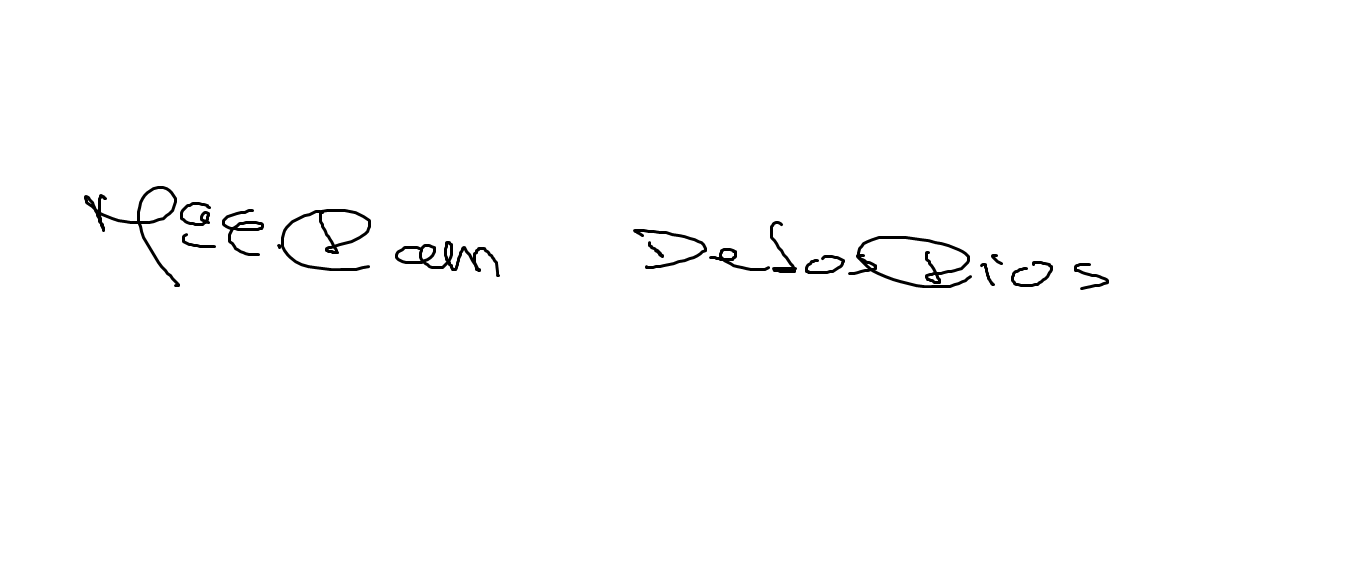 Mª E Pam De los Dios